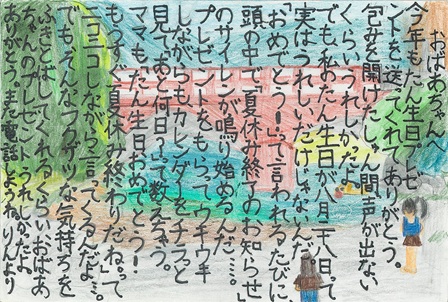 おばあちゃんへ
今年もたん生日プレゼ
ントを送ってくれてありがとう。
包みを開けたしゅん間声が出ない
くらいうれしかったよ。
でも私のたん生日が八月二十八日って
実はうれしいだけじゃないんだ。
「おめでとう!」って言われるたびに
頭の中で「夏休み終てのお知らせ」
のサイレンが鳴り始めるんだ…。
プレゼントをもらってウキウキ
しながらもカレンダーをチラっと
見て「あと何日?」って数えちゃう。
ママも「たん生日おめでとう!
もうすぐ夏休み終わりだね。」って
ニコニコしながら言ってくるんだよ…。
でもそんなフクザツな気持ちを
ふきとばしてくれるくらいおばあ
ちゃんのプレゼントうれしかったよ
ありがとう。また電話しようね。りんより